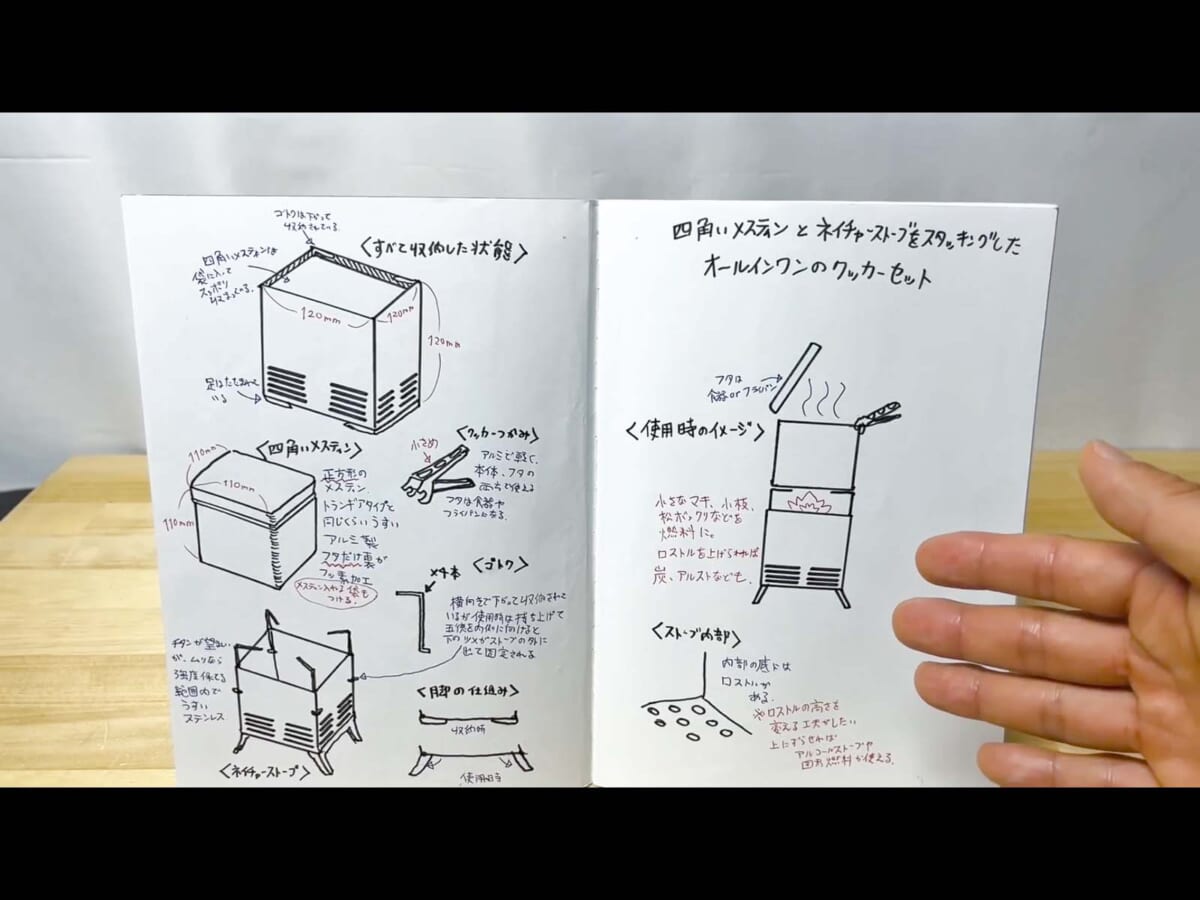 ゴトクは下がって
収納されている.
〈すべて収納した状態〉
四角いメスティンは
袋に入って
スッポリ
収まっている.
120mm
120mm
120mm
足はたたまれて
いる
〈四角いメスティン〉
110mm
110mm
110mm
正方形の
メスティン.
トランギアタイプと
同じくらいうすい
アルミ製
フタだけ裏が
フッ素加工
メスティン入れる袋も
つける.
〈クッカーつかみ〉
小さめ
アルミで軽く、
本体、フタの
両方で使える
フタは食器や
フライパンになる.
〈ゴトク〉
×4本
横向きで下がって収納されて
いるが使用時は持ち上げて
五徳を内側に向けると
下のツメがストーブの外に
出て固定される
チタンが望ましい
が、ムリなら
強度保てる
範囲内で
うすい
ステンレス
〈ネイチャーストーブ〉
〈脚の仕組み〉
収納時
使用時
四角いメスティンとネイチャーストーブをスタッキングした
オールインワンのクッカーセット
フタは
食器orフライパン
〈使用時のイメージ〉
小さなマキ、小枝、
松ボックリなどを
燃料に。
ロストルを上げられれば
炭、アルストなども.
〈ストーブ内部〉
内部の底には
ロストルが
ある.
※ロストルの高さを
変える工夫がしたい
上にずらせれば
アルコールストーブや
固形燃料が使える.